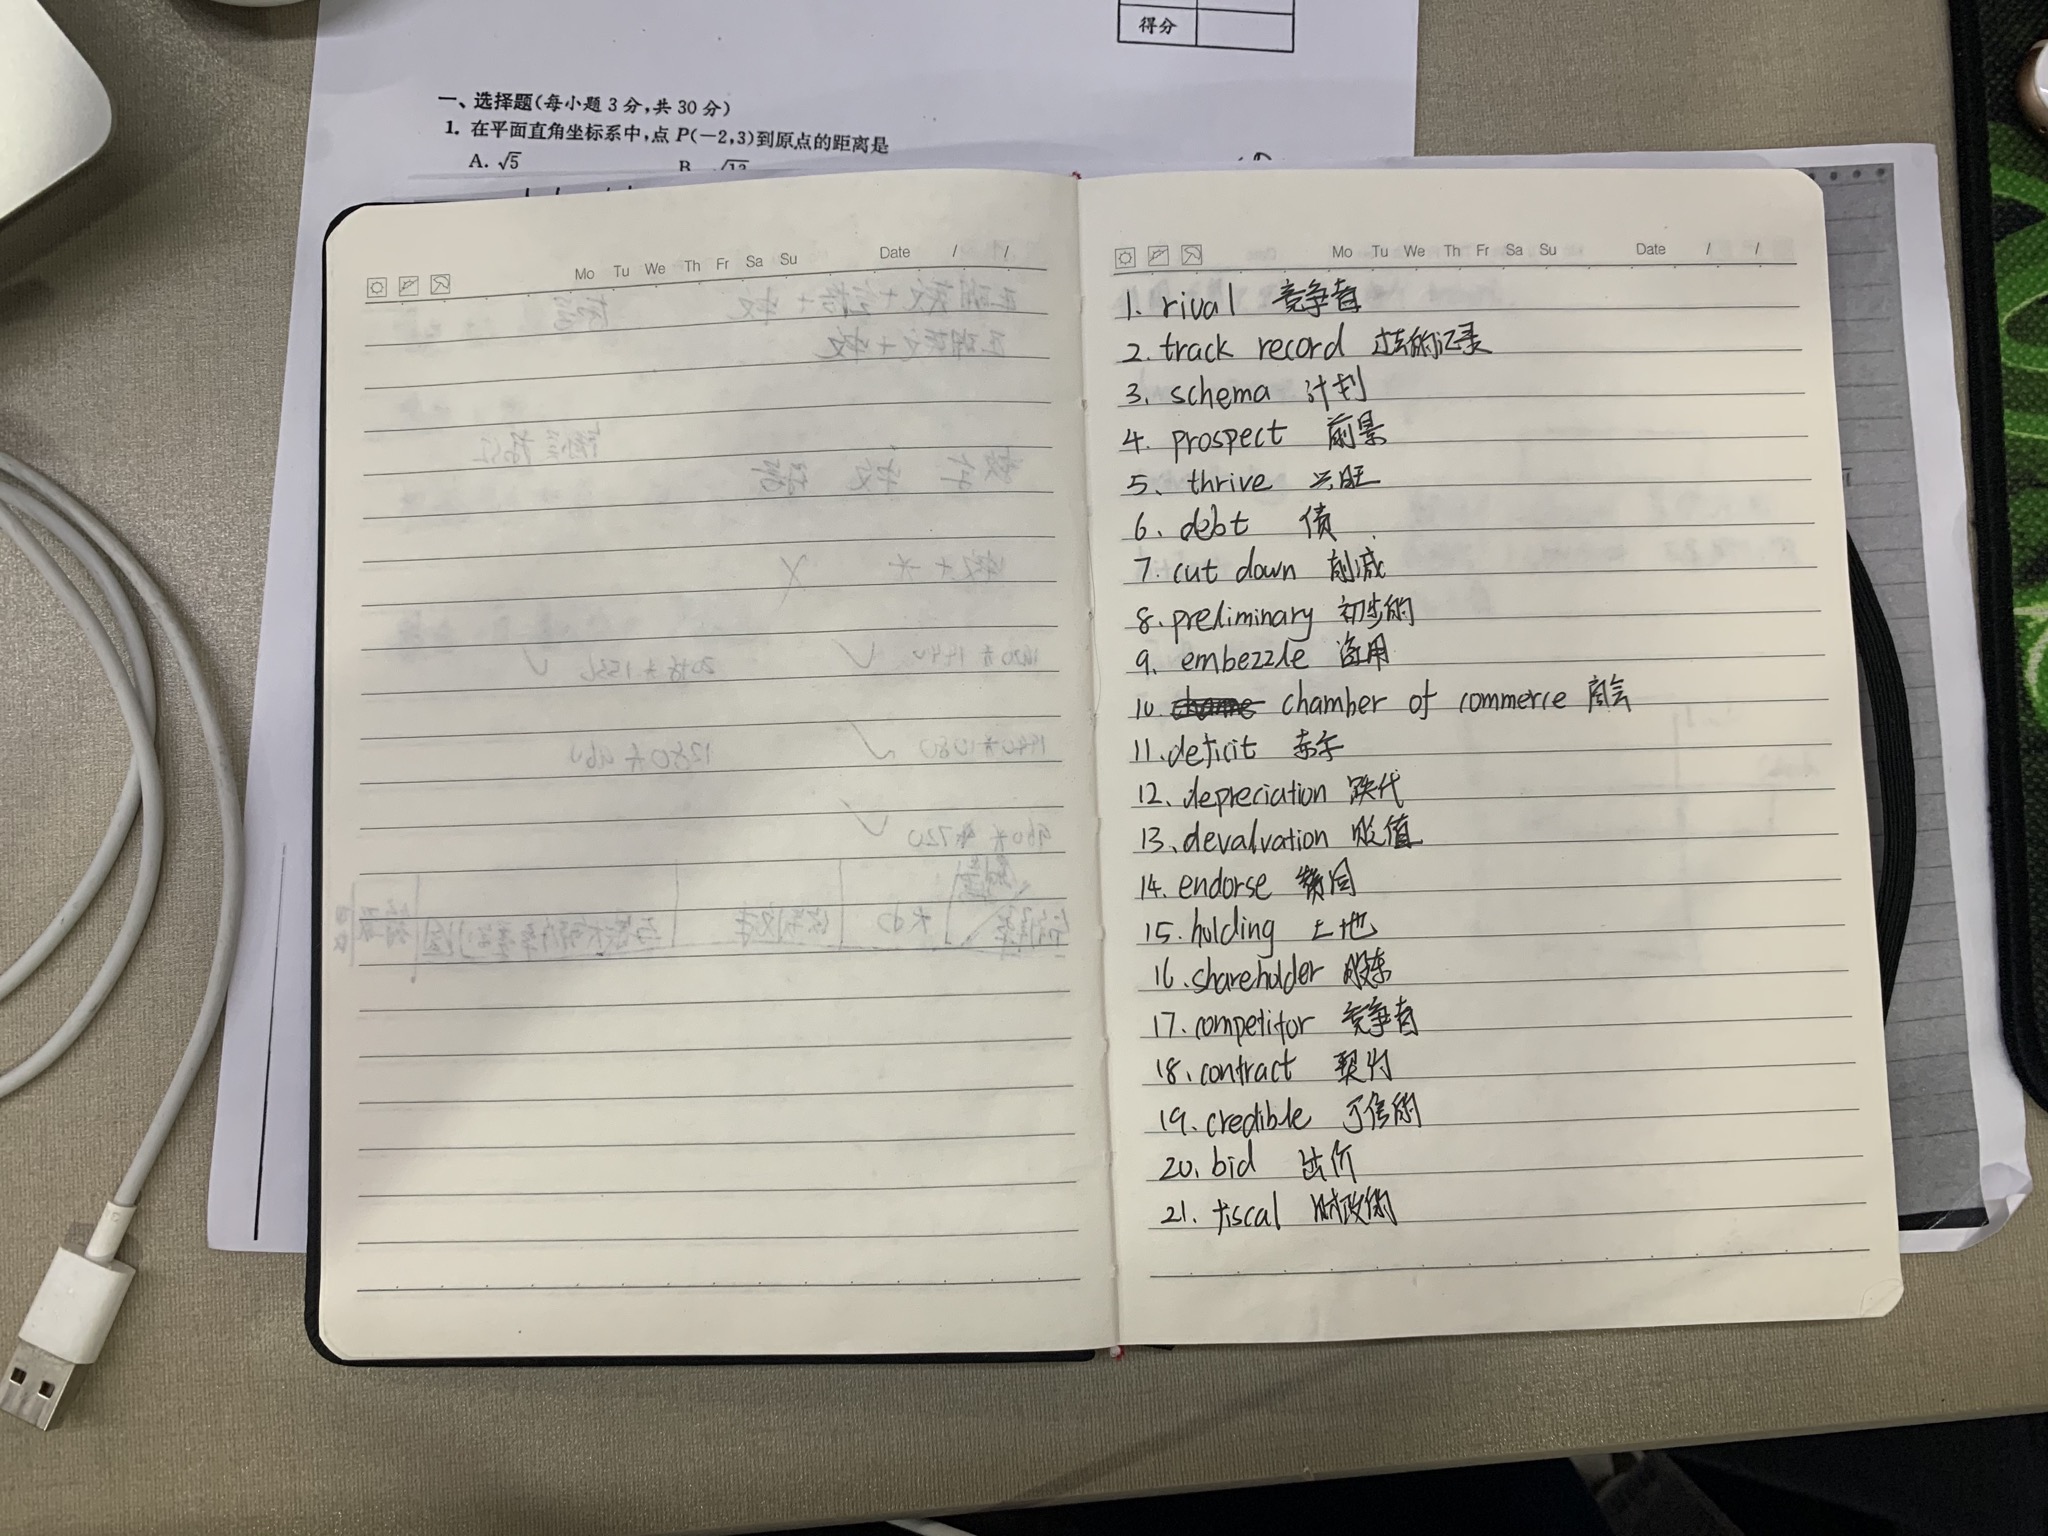 得分
一、选择题(每小题 3 分,共 30 分)
1. 在平面直角坐标系中,点 P(-2,3)到原点的距离是
A. √5 B. √13
Mo Tu We Th Fr Sa Su Date / /
Mo Tu We Th Fr Sa Su Date / /
1. rival 竞争者
2. track record 过去的记录
3. schema 计划
4. prospect 前景
5. thrive 兴旺
6. debt 债
7. cut down 削减
8. preliminary 初步的
9. embezzle 盗用
10. chamber of commerce 商会
11. deficit 赤字
12. depreciation 跌代
13. devalvation 贬值
14. endorse 赞同
15. holding 土地
16. shareholder 股东
17. competitor 竞争者
18. contract 契约
19. credible 可信的
20. bid 出价
21. fiscal 财政的